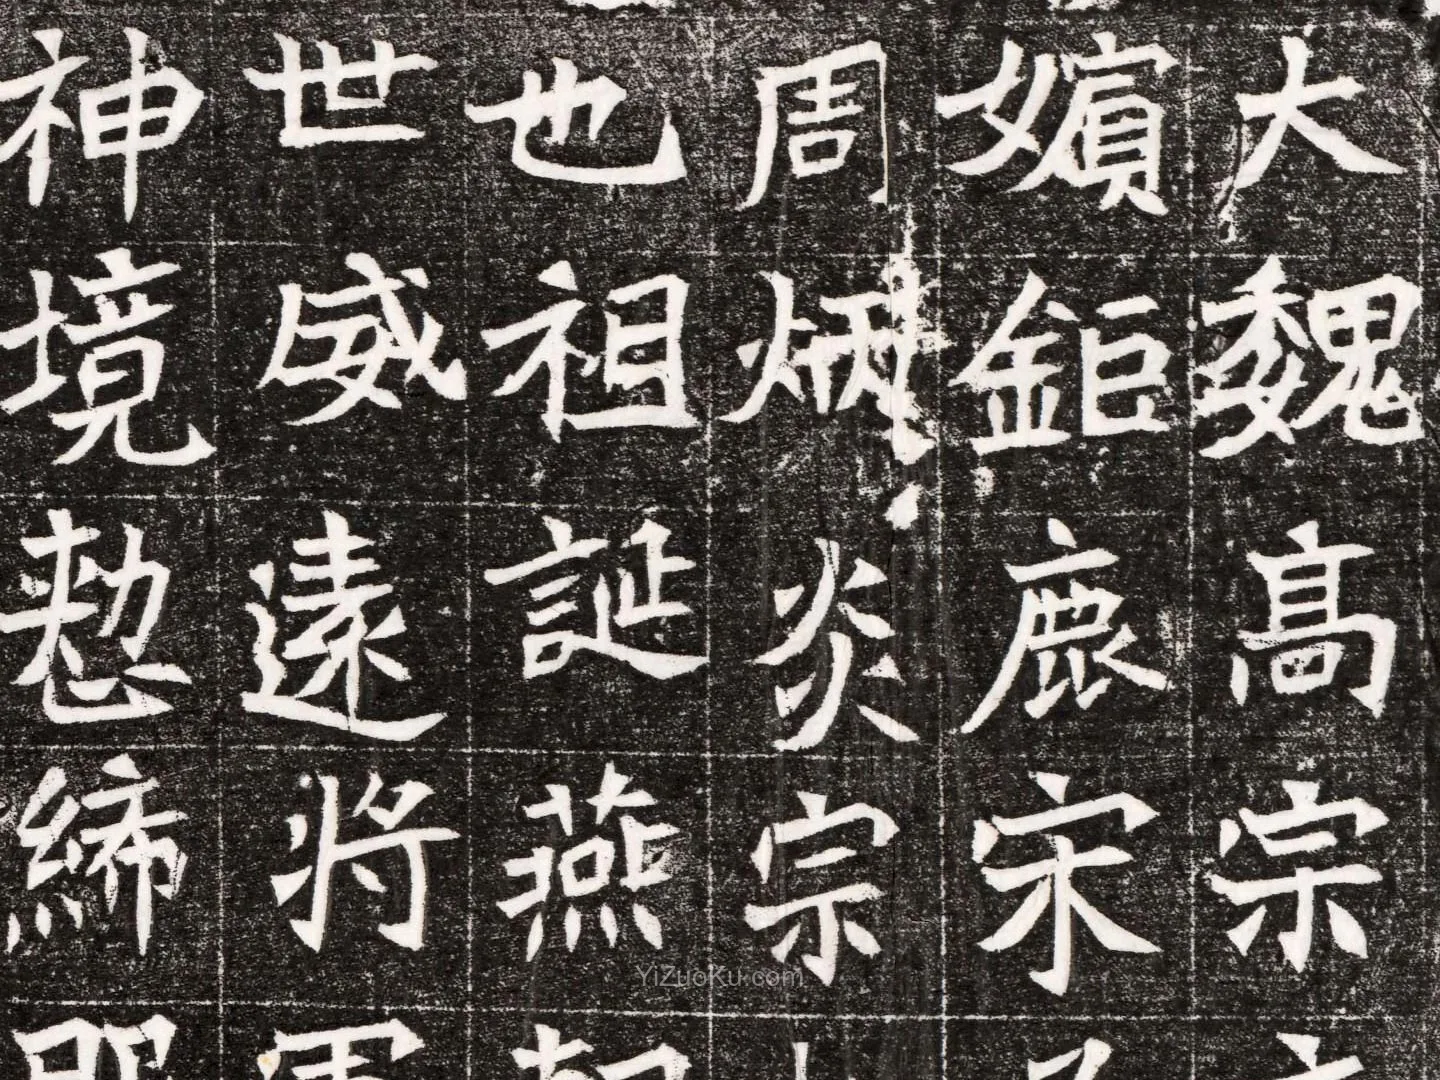 大魏高宗
嬪鉅鹿宋
周炳炎宗
也祖誕燕
世威遠將
神境懃締
YiZuoKu.com